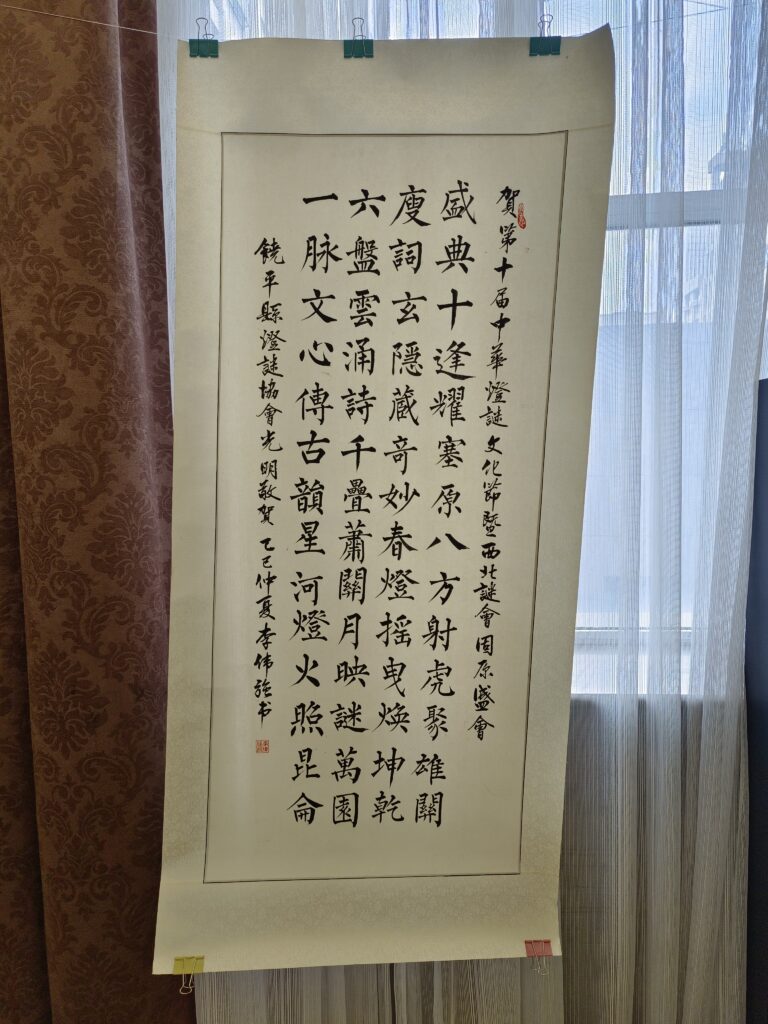 賀第十届中華燈謎文化節暨西北謎會固原盛會
盛典十逢耀塞原八方射虎聚雄關
廋詞玄隱蔵奇妙春燈摇曳焕坤乾
六盤雲涌詩千疊蕭關月映謎萬園
一脉文心傳古韻星河燈火照昆侖
饒平縣燈謎協會光明敬賀 乙巳仲夏李伟強书